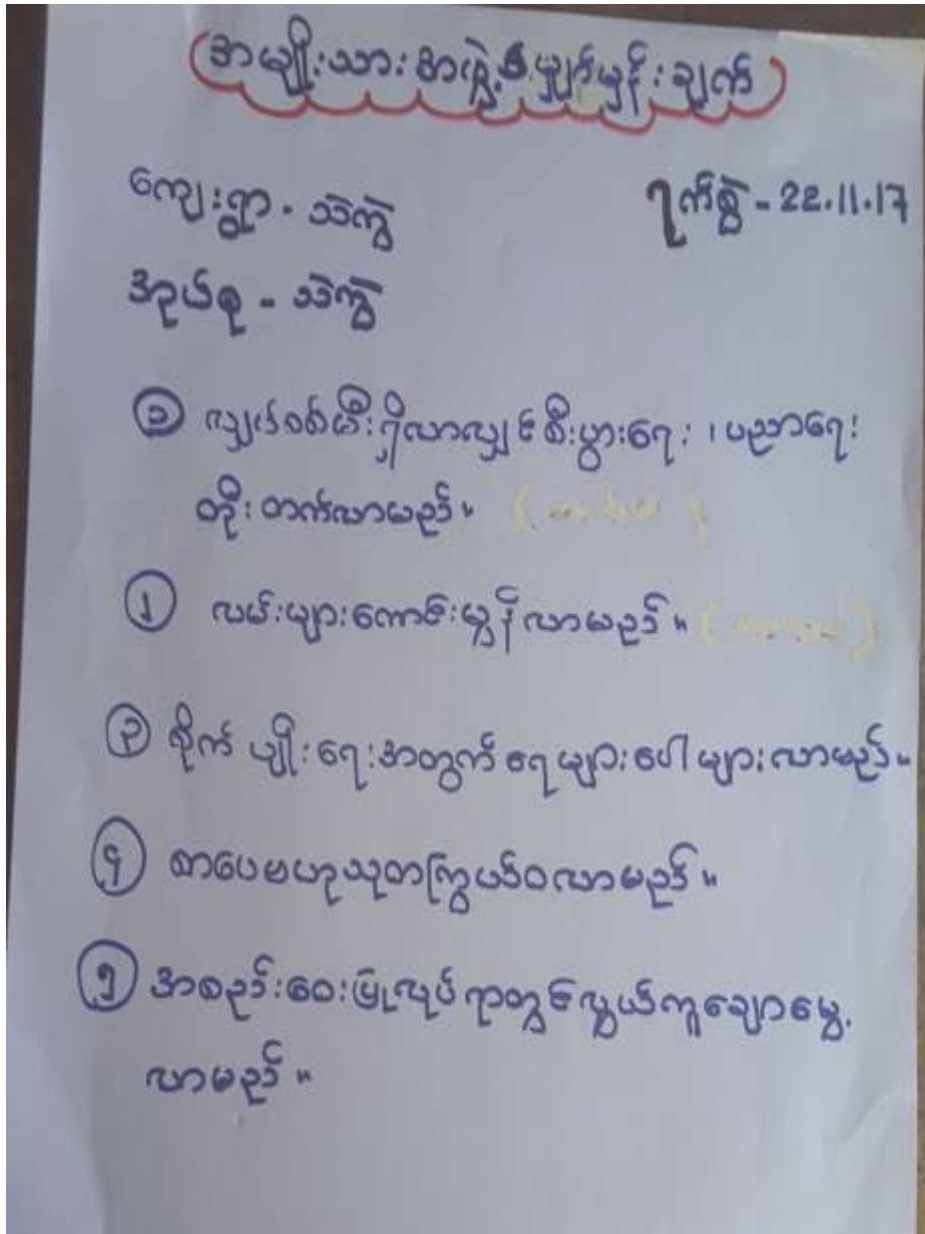 အမျိုးသားအဖွဲ့၏မျှော်မှန်းချက်
ကျေးရွာ - သဲကွဲ ရက်စွဲ - 22.11.17
အုပ်စု - သဲကွဲ
၁ လျှပ်စစ်မီးရှိလာလျှင်စီးပွားရေး ၊ ပညာရေး
တိုးတက်လာမည်။
၂ လမ်းများကောင်းမွန်လာမည်။
၃ စိုက်ပျိုးရေးအတွက်ရေများပေါများလာမည်။
၄ စာပေဗဟုသုတကြွယ်ဝလာမည်။
၅ အစည်းဝေးပြုလုပ်ရာတွင်လွယ်ကူချောမွေ့
လာမည်။